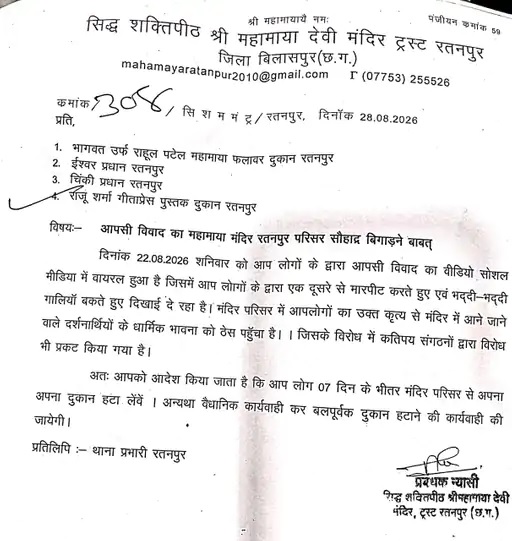 श्री महामायायै नमः
पंजीयन कमांक 59
सिद्ध शक्तिपीठ श्री महामाया देवी मंदिर ट्रस्ट रतनपुर
जिला बिलासपुर(छ.ग.)
mahamayaratanpur2010@gmail.com (07753) 255526
कमांक / सि श म मं ट्र / रतनपुर, दिनॉक 28.08.2026
प्रति,
1. भागवत उर्फ राहूल पटेल महामाया फलावर दुकान रतनपुर
2. ईश्वर प्रधान रतनपुर
3. चिंकी प्रधान रतनपुर
4. राजू शर्मा गीताप्रेस पुस्तक दुकान रतनपुर
विषयः– आपसी विवाद का महामाया मंदिर रतनपुर परिसर सौहाद्र बिगाड़ने बाबत्
दिनांक 22.08.2026 शनिवार को आप लोगों के द्वारा आपसी विवाद का वीडियो सोशल
मीडिया में वायरल हुआ है जिसमें आप लोगों के द्वारा एक दूसरे से मारपीट करते हुए एवं भद्दी–भद्दी
गालियॉ बकते हुए दिखाई दे रहा है। मंदिर परिसर में आपलोगों का उक्त कृत्य से मंदिर में आने जाने
वाले दर्शनार्थियों के धार्मिक भावना को ठेस पहुँचा है। । जिसके विरोध में कतिपय संगठनों द्वारा विरोध
भी प्रकट किया गया है।
अतः आपको आदेश किया जाता है कि आप लोग 07 दिन के भीतर मंदिर परिसर से अपना
अपना दुकान हटा लेंवें । अन्यथा वैधानिक कार्यवाही कर बलपूर्वक दुकान हटाने की कार्यवाही की
जायेगी।
प्रतिलिपि :– थाना प्रभारी रतनपुर
प्रबंधक न्यासी
सिद्ध शक्तिपीठ श्रीमहामाया देवी
मंदिर, ट्रस्ट रतनपुर (छ.ग.)